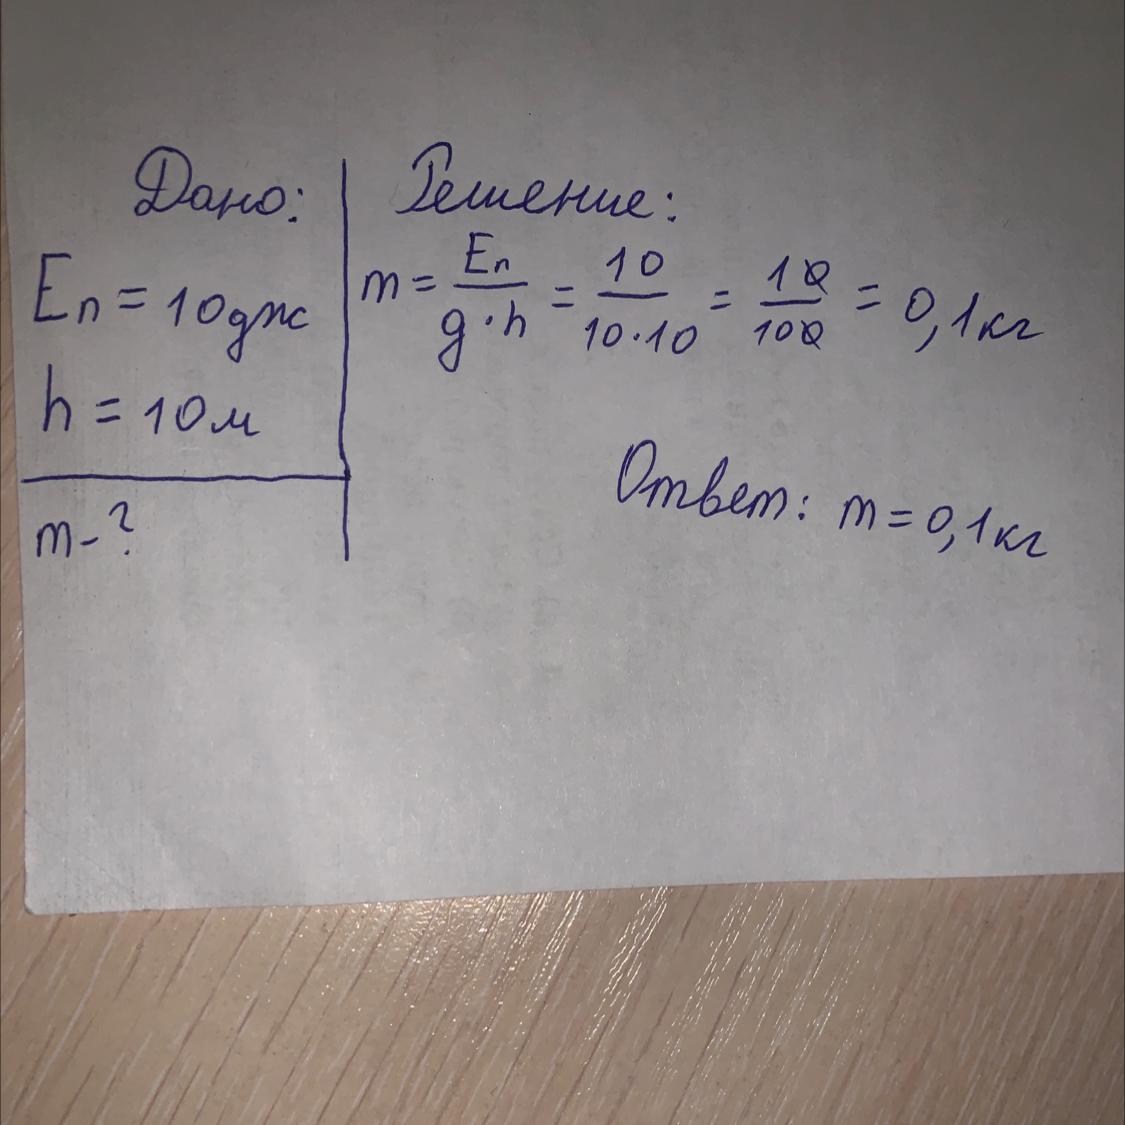 Дано:
Eп = 10дж
h = 10м
m-?
Решение:
m = Eп/g·h = 10/10·10 = 10/100 = 0,1кг
Ответ: m = 0,1кг